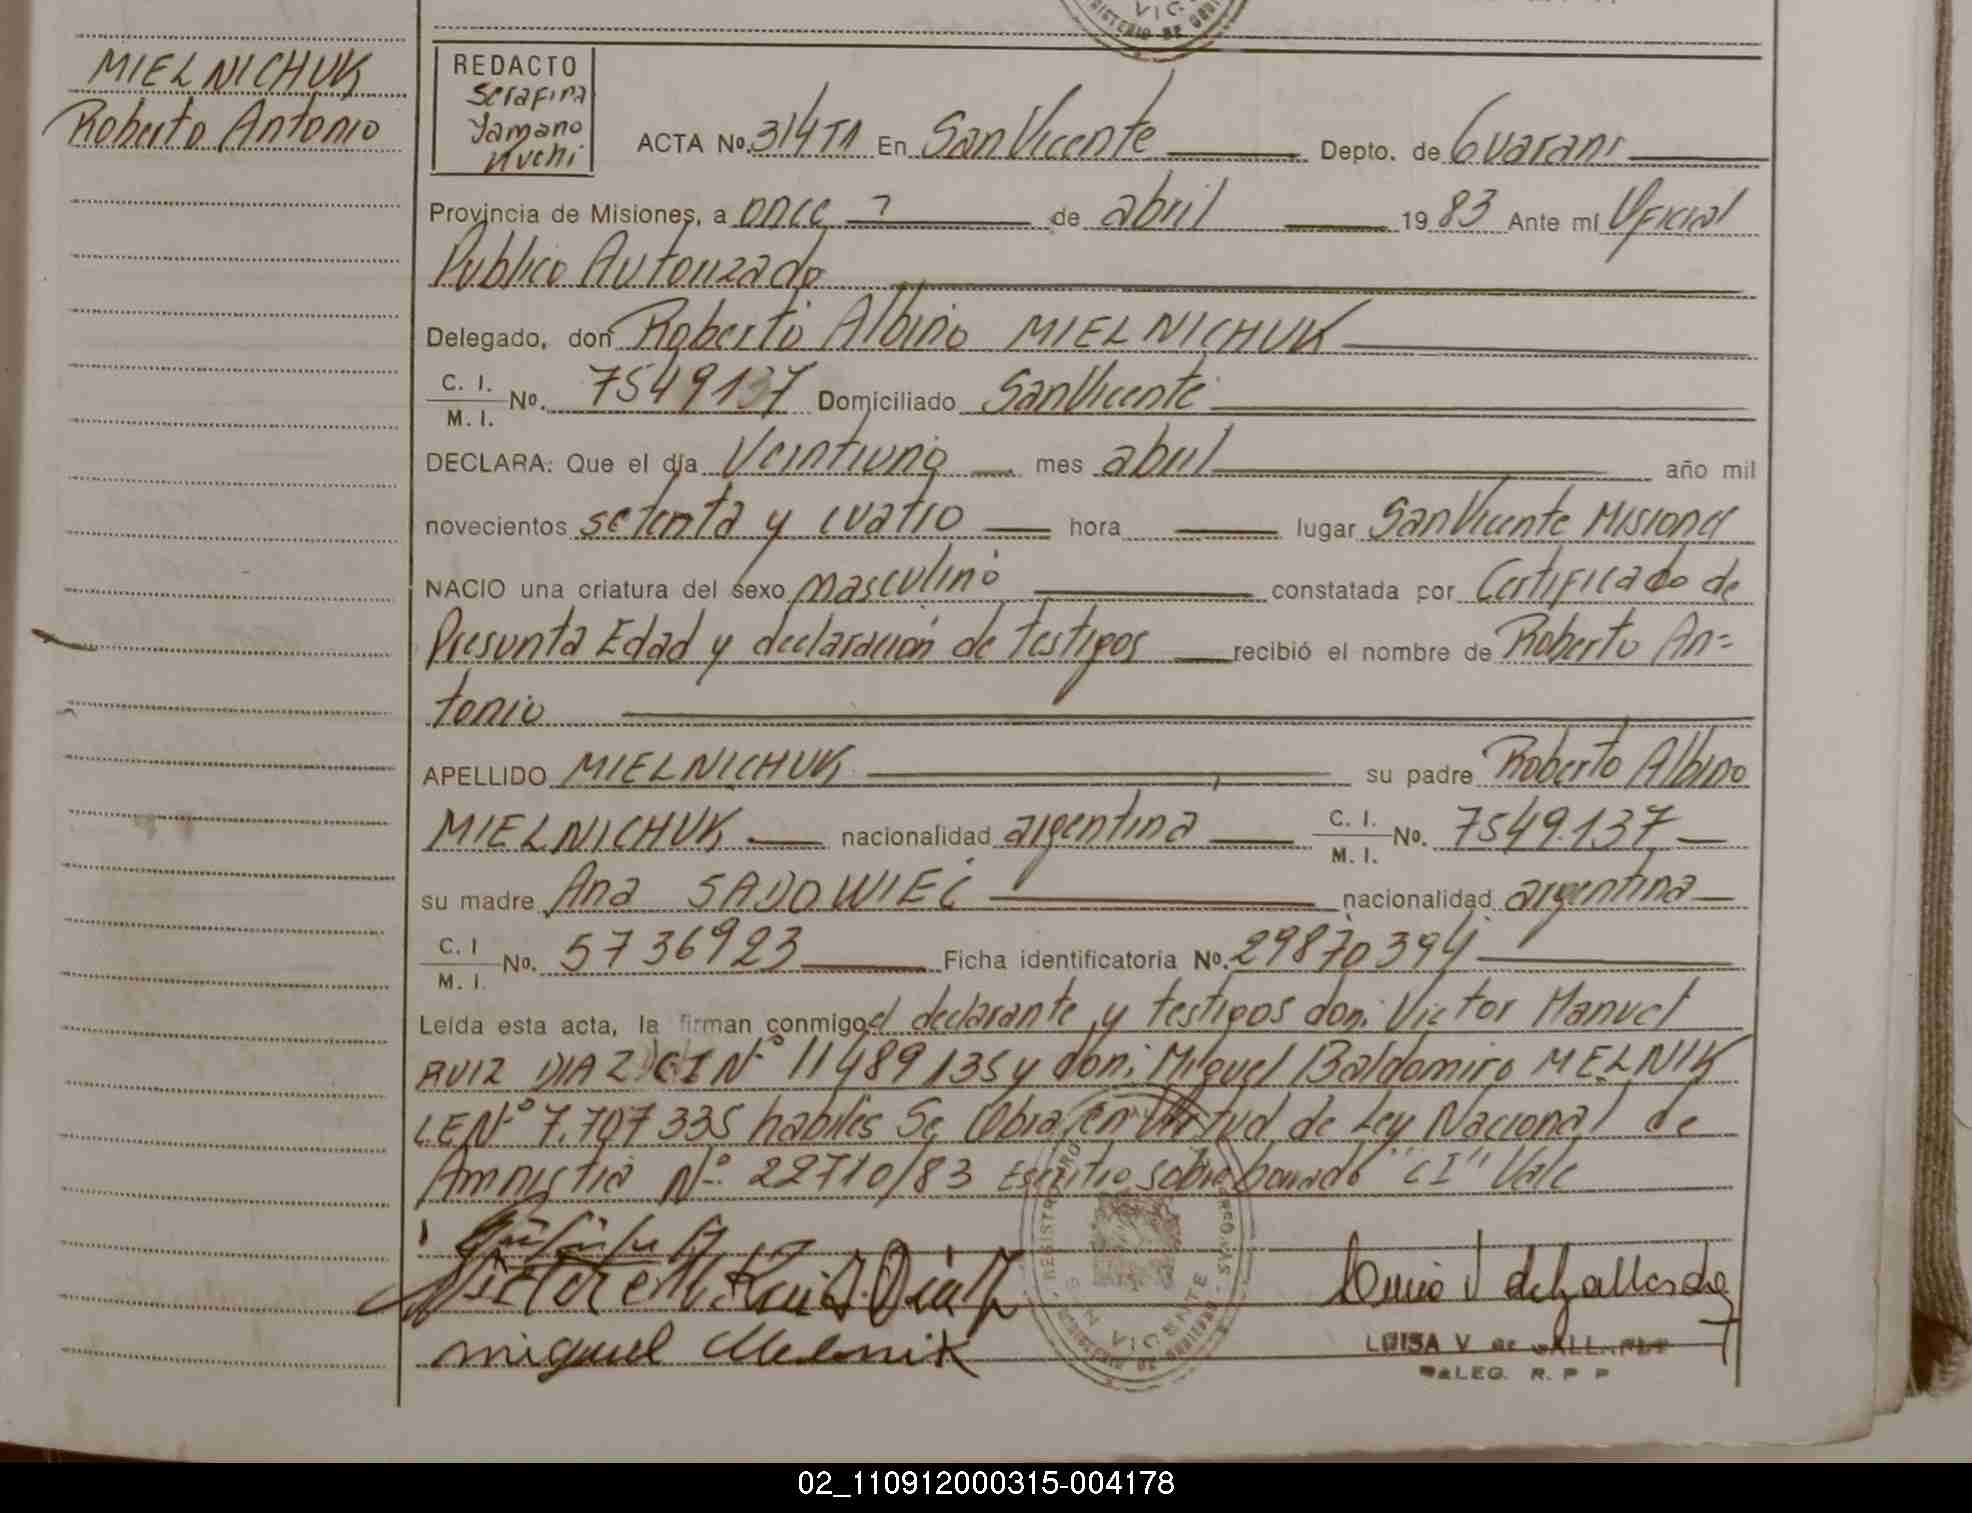 MIELNICHUK
Roberto Antonio
REDACTO
Serafina
Yamano
Kuchi
ACTA No. 314 T1 En San Vicente Depto. de Guarani
Provincia de Misiones, a once de abril 1983 Ante mi Oficial
Publico Autorizado
Delegado, don Roberto Albino MIELNICHUK
C. I. / M. I. No. 7549137 Domiciliado San Vicente
DECLARA: Que el día Veintiuno mes abril año mil
novecientos setenta y cuatro hora lugar San Vicente Misiones
NACIO una criatura del sexo masculino constatada por Certificado de
Presunta Edad y declaración de testigos recibió el nombre de Roberto An=
tonio
APELLIDO MIELNICHUK su padre Roberto Albino
MIELNICHUK nacionalidad argentina C. I. / M. I. No. 7549.137
su madre Ana SADOWIEC nacionalidad argentina
C. I / M. I. No. 5736923 Ficha identificatoria No. 29870394
Leída esta acta, la firman conmigo el declarante y testigos don: Victor Manuel
RUIZ DIAZ CI Nº 11489135 y don: Miguel Baldomiro MELNIK
LE Nº 7.707335 habiles Se Obra en Virtud de Ley Nacional de
Amnistia Nº 22710/83 Escrito sobre borrado "CI" Vale
Victor M. Ruiz Diaz
miguel Melnik
SAN VICENTE
LUISA V de
DELEG. R. P P
02_110912000315-004178